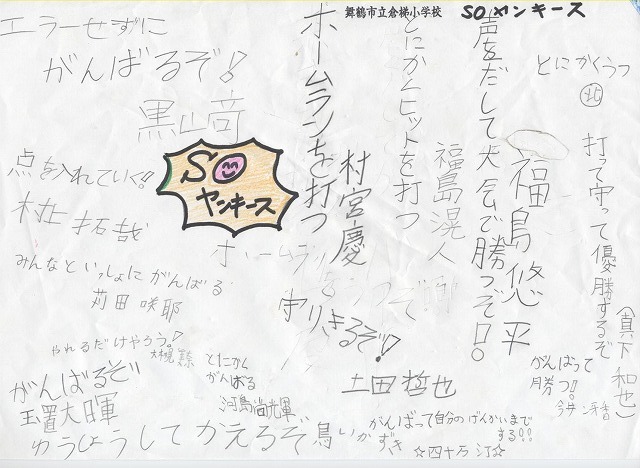 舞鶴市立倉梯小学校
SOヤンキース
とにかくうつ
北
打って守って優勝するぞ
(真下 和也)
声をだして大会で勝つぞ!!
福島悠平
とにかくヒットを打つ
福島滉人
ホームランを打つ
村宮慶
エラーせずに
がんばるぞ!
SO
ヤンキース
点を入れていく!!
村上 拓哉
みんなといっしょにがんばる
苅田 咲耶
守りきるぞ!
土田 哲也
やれるだけやろう!
とにかく
がんばる
河島
がんばるぞ
玉置大暉
がんばって
勝つ!!
がんばって自分のげんかいまで
する!!
ゆうしょうしてかえるぞ